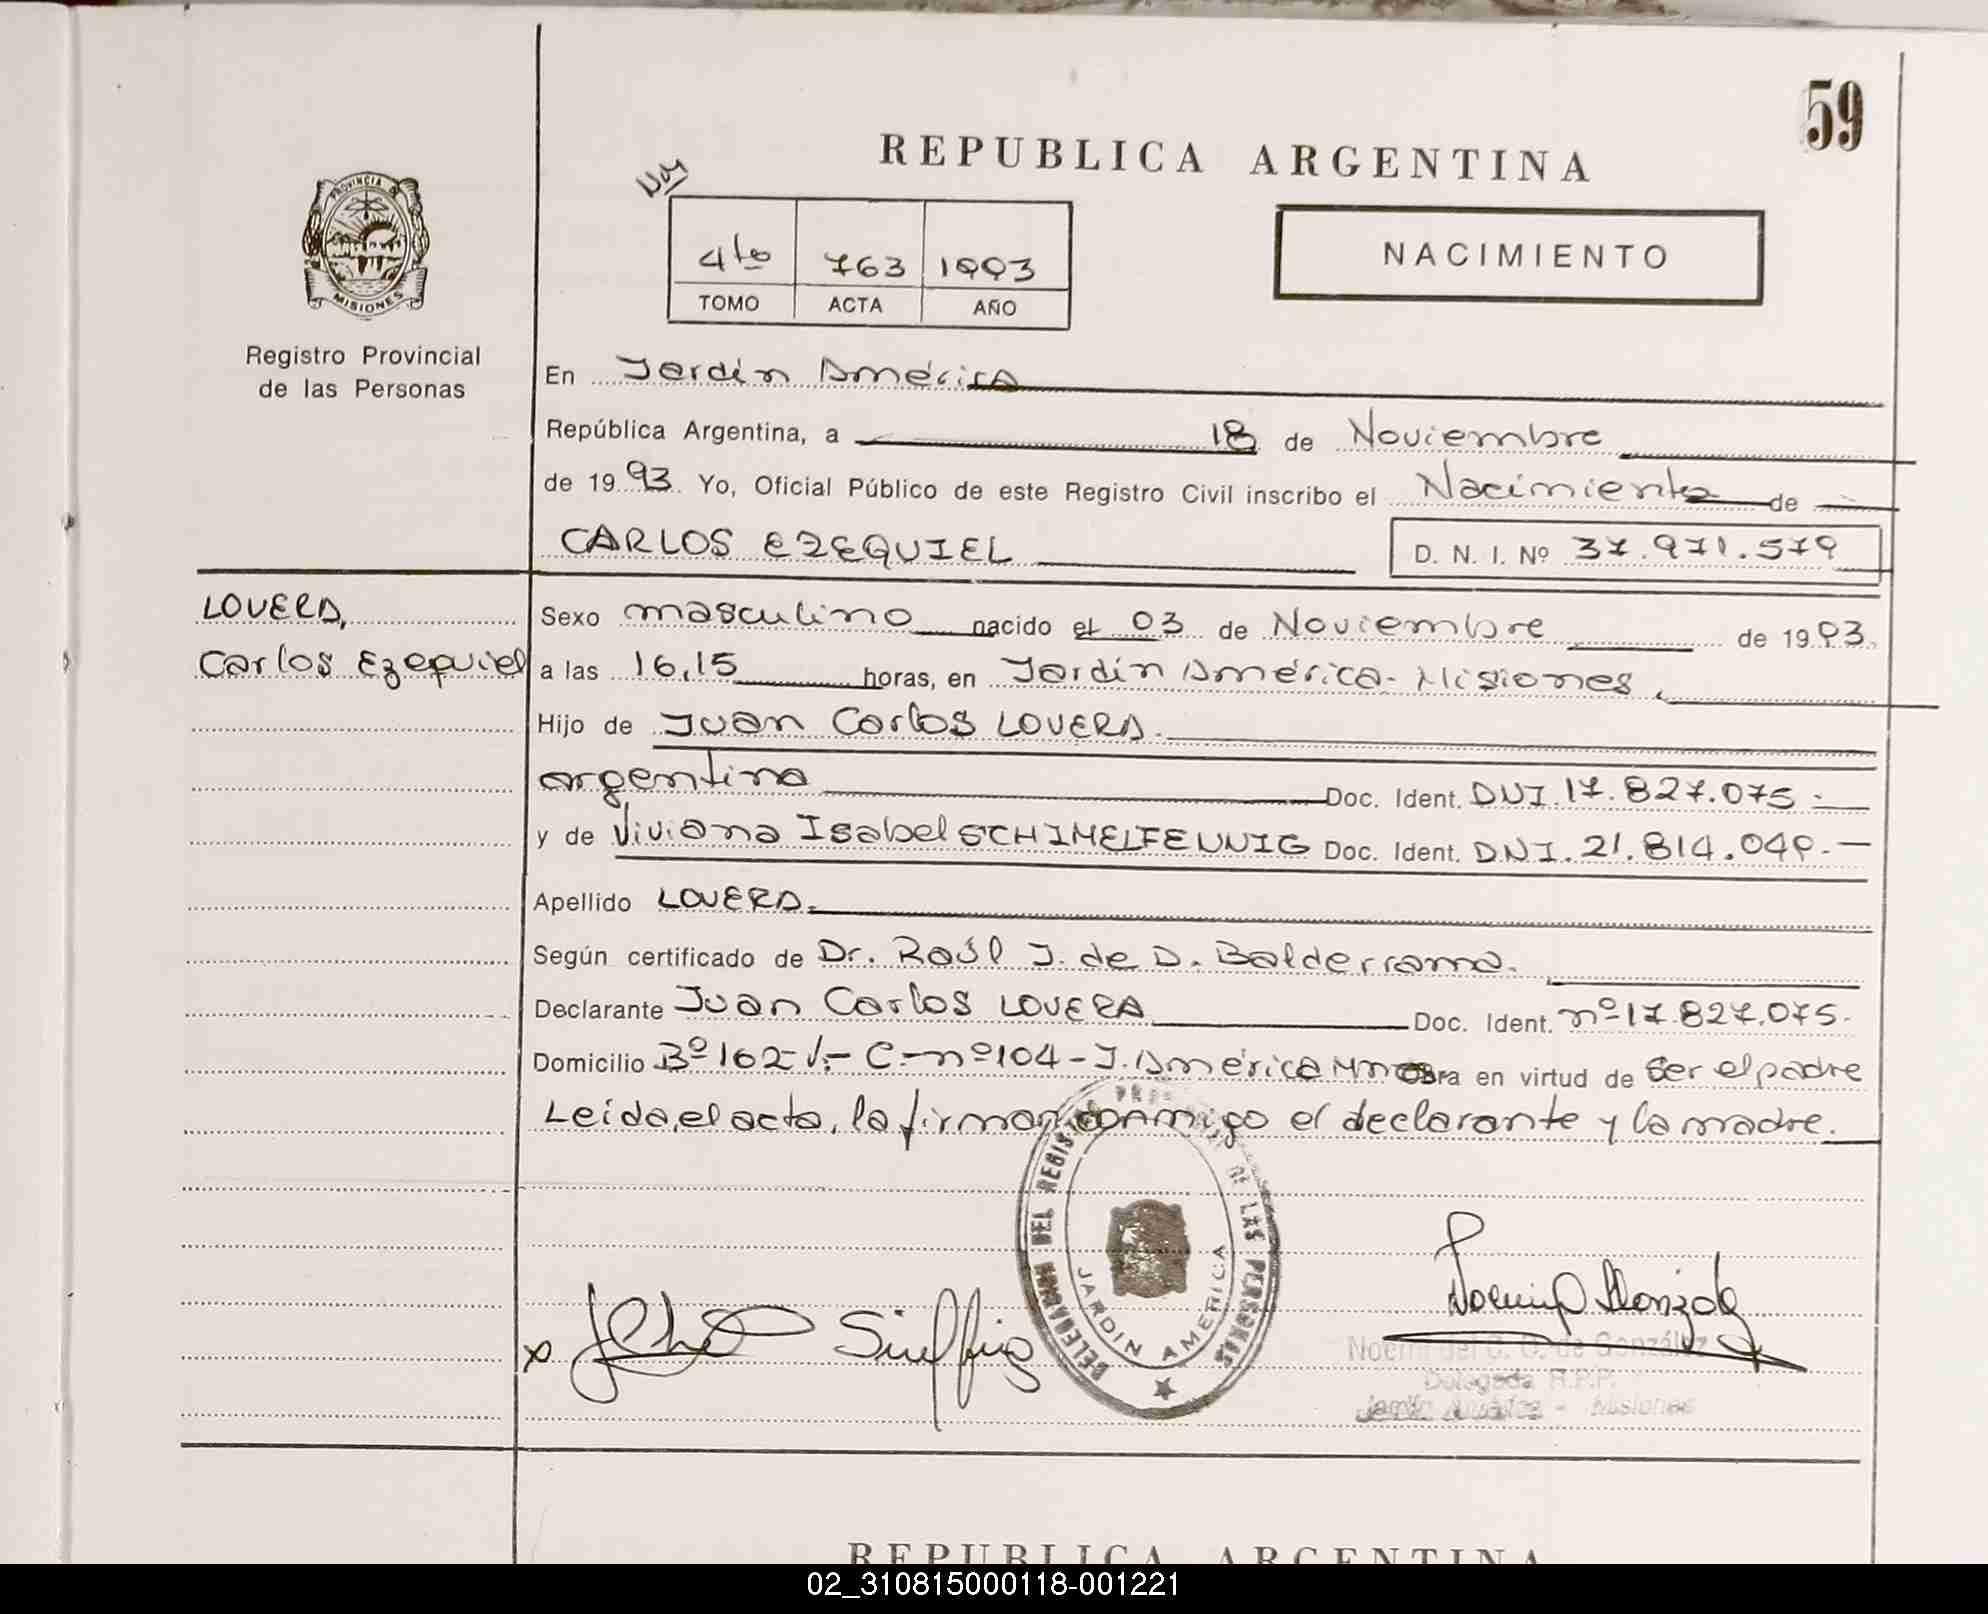 59
REPUBLICA ARGENTINA
NACIMIENTO
4to 763 1993
TOMO ACTA AÑO
PROVINCIA DE
MISIONES
Registro Provincial
de las Personas
En Jardín América
República Argentina, a 18 de Noviembre
de 1993. Yo, Oficial Público de este Registro Civil inscribo el Nacimiento de
CARLOS EZEQUIEL D. N. I. Nº 37.971.579
LOVERA,
Carlos Ezequiel
Sexo masculino nacido el 03 de Noviembre de 1993.
a las 16,15 horas, en Jardín América - Misiones.
Hijo de Juan Carlos LOVERA.
argentino Doc. Ident. DNI. 17.827.075.-
y de Viviana Isabel SCHIMELFENNIG Doc. Ident. DNI. 21.814.049.-
Apellido LOVERA.
Según certificado de Dr. Raúl J. de D. Balderrama.
Declarante Juan Carlos LOVERA Doc. Ident. nº 17.827.075.
Domicilio Bº 162 V.- C.- nº 104 - J. América Mnes Obra en virtud de ser el padre
Leída el acta, la firman conmigo el declarante y la madre.
DELEGACION DEL REGISTRO PROVINCIAL DE LAS PERSONAS
JARDIN AMERICA
Noemí del C. O. de González
Delegada R.P.P.
Jardín América - Misiones
REPUBLICA ARGENTINA
02_310815000118-001221